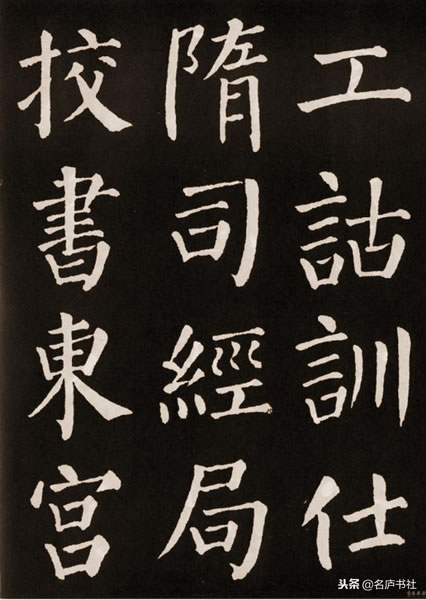 工詁訓仕
隋司經局
挍書東宮
头条@名庐书社